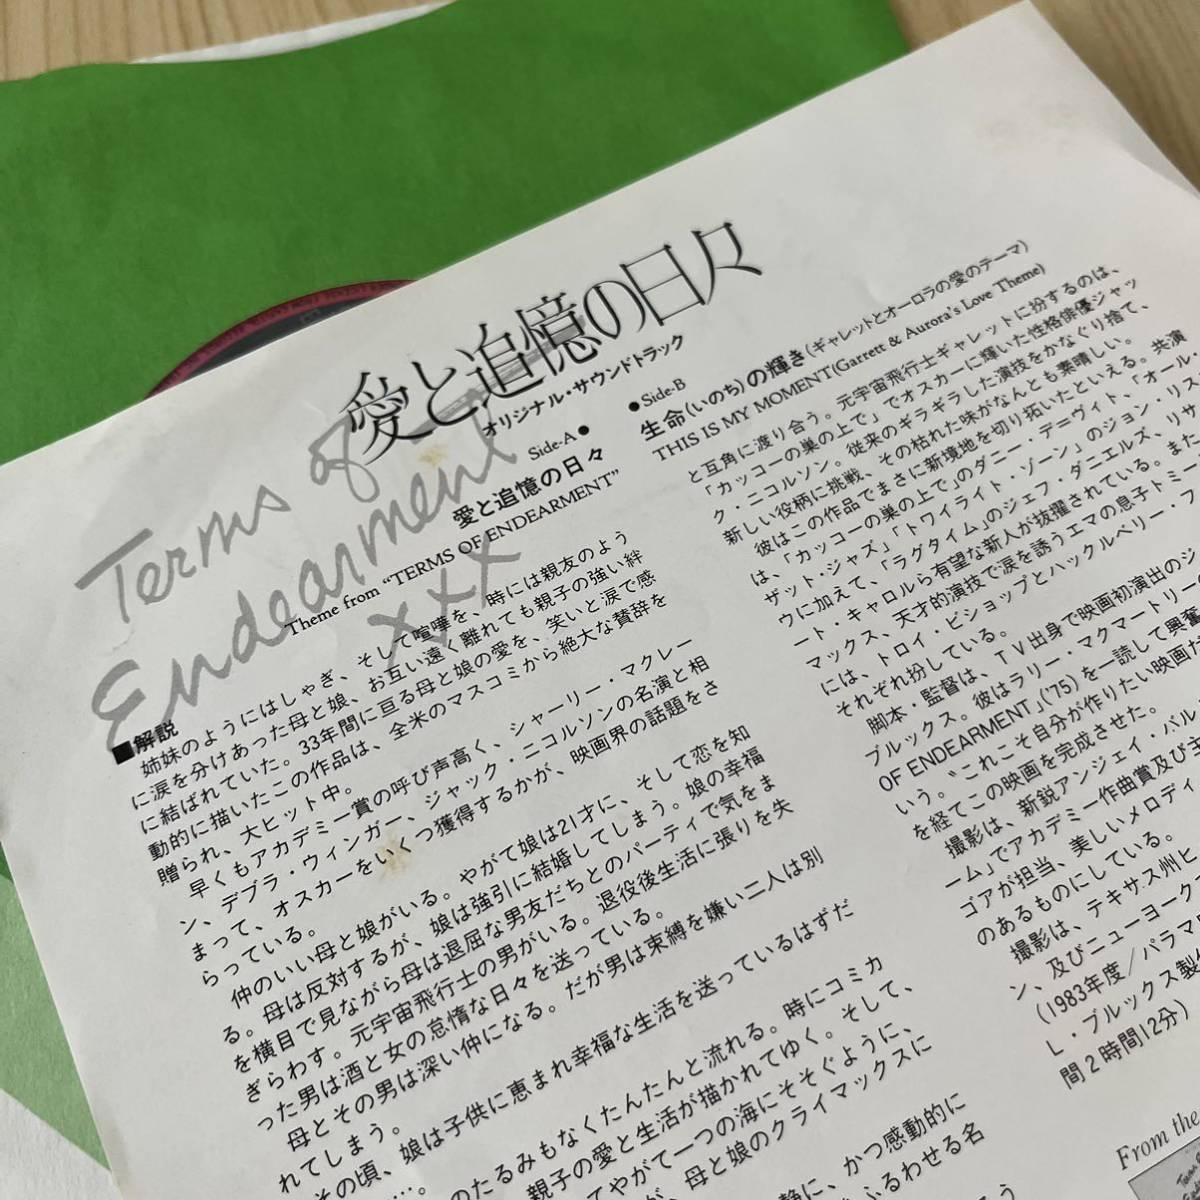 愛と追憶の日々
オリジナル・サウンドトラック
Terms of
Endearment
xxx
Side-A●
愛と追憶の日々
Theme from "TERMS OF ENDEARMENT"
■解説
姉妹のようにはしゃぎ、そして喧嘩を、時には親友のよう
に涙を分けあった母と娘、お互い遠く離れても親子の強い絆
に結ばれていた。33年間に亘る母と娘の愛を、笑いと涙で感
動的に描いたこの作品は、全米のマスコミから絶大な賛辞を
贈られ、大ヒット中。
早くもアカデミー賞の呼び声高く、シャーリー・マクレー
ン、デブラ・ウィンガー、ジャック・ニコルソンの名演と相
まって、オスカーをいくつ獲得するかが、映画界の話題をさ
らっている。
仲のいい母と娘がいる。やがて娘は21才に、そして恋を知
る。母は反対するが、娘は強引に結婚してしまう。娘の幸福
を横目で見ながら母は退屈な男友だちとのパーティで気をま
ぎらわす。元宇宙飛行士の男がいる。退役後生活に張りを失
った男は酒と女の怠惰な日々を送っている。
母とその男は深い仲になる。だが男は束縛を嫌い二人は別
れてしまう。
その頃、娘は子供に恵まれ幸福な生活を送っているはずだ
…。
のたるみもなくたんたんと流れる。時にコミカ
親子の愛と生活が描かれてゆく。そして、
てやがて一つの海にそそぐように、
母と娘のクライマックスに
静に、かつ感動的に
ふるわせる名
●Side-B
生命(いのち)の輝き(ギャレットとオーロラの愛のテーマ)
THIS IS MY MOMENT(Garrett & Aurora's Love Theme)
と互角に渡り合う。元宇宙飛行士ギャレットに扮するのは、
「カッコーの巣の上で」でオスカーに輝いた性格俳優ジャッ
ク・ニコルソン。従来のギラギラした演技をかなぐり捨て、
新しい役柄に挑戦、その枯れた味がなんとも素晴しい。
彼はこの作品でまさに新境地を切り拓いたといえる。共演
は、「カッコーの巣の上で」のダニー・デ=ヴィト、「オール・
ザット・ジャズ」「トワイライト・ゾーン」のジョン・リス
ウに加えて、「ラグタイム」のジェフ・ダニエルズ、リサ
ート・キャロルら有望な新人が抜擢されている。また
マックス、天才的演技で涙を誘うエマの息子トミー
には、トロイ・ビショップとハックルベリー・フ
それぞれ扮している。
脚本・監督は、TV出身で映画初演出のジ
ブルックス。彼はラリー・マクマートリー
OF ENDEARMENT」('75)を一読して興奮
いう。“これこそ自分が作りたい映画だ
を経てこの映画を完成させた。
撮影は、新鋭アンジェイ・バル
ーム」でアカデミー作曲賞及び主
ゴアが担当、美しいメロディ
のあるものにしている。
撮影は、テキサス州ヒ
ン、及びニューヨーク
(1983年度/パラマ
L・ブルックス製作
間2時間12分)
From the